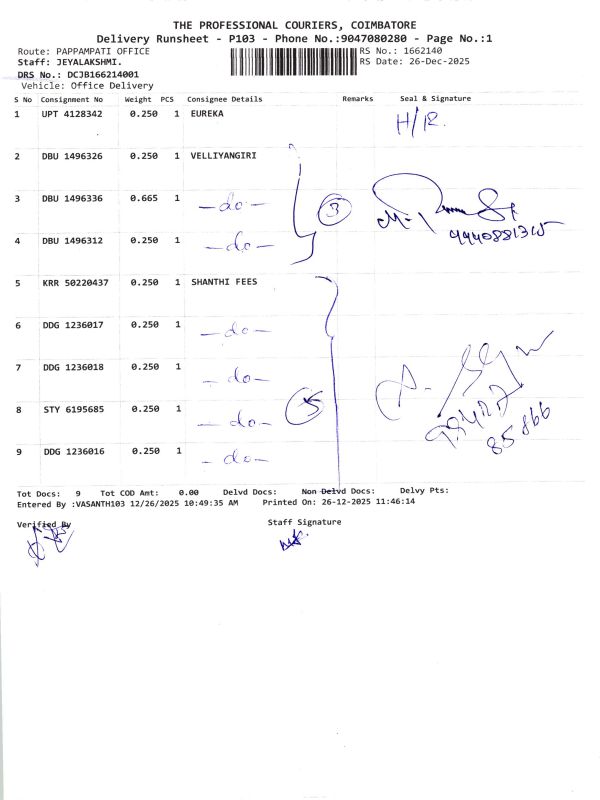 THE PROFESSIONAL COURIERS, COIMBATORE
Delivery Runsheet - P103 - Phone No.:9047080280 - Page No.:1
Route: PAPPAMPATI OFFICE
RS No.: 1662140
Staff: JEYALAKSHMI.
RS Date: 26-Dec-2025
DRS No.: DCJB166214001
Vehicle: Office Delivery
S No Consignment No Weight PCS Consignee Details Remarks Seal & Signature
1 UPT 4128342 0.250 1 EUREKA H/R.
2 DBU 1496326 0.250 1 VELLIYANGIRI
3 DBU 1496336 0.665 1 —do— 3
4 DBU 1496312 0.250 1 —do—
5 KRR 50220437 0.250 1 SHANTHI FEES
6 DDG 1236017 0.250 1 —do—
7 DDG 1236018 0.250 1 —do—
8 STY 6195685 0.250 1 —do— 5
85866
9 DDG 1236016 0.250 1 —do—
Tot Docs: 9 Tot COD Amt: 0.00 Delvd Docs: Non Delvd Docs: Delvy Pts:
Entered By :VASANTH103 12/26/2025 10:49:35 AM Printed On: 26-12-2025 11:46:14
Verified By Staff Signature